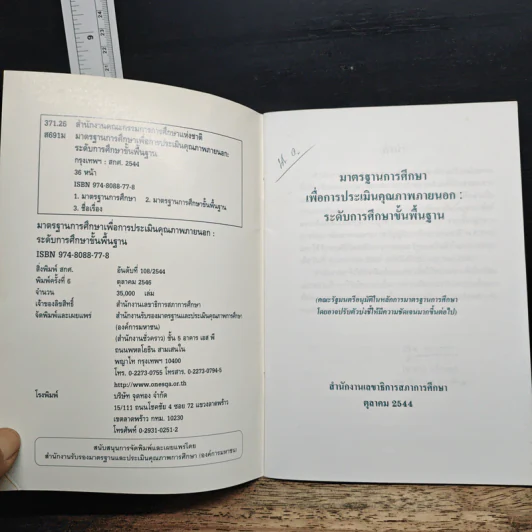 9
371.26 สำนักงานคณะกรรมการการศึกษาแห่งชาติ
ส691ม มาตรฐานการศึกษาเพื่อการประเมินคุณภาพภายนอก:
ระดับการศึกษาขั้นพื้นฐาน
กรุงเทพฯ : สกศ. 2544
36 หน้า
ISBN 974-8088-77-8
1. มาตรฐานการศึกษา 2. มาตรฐานการศึกษาขั้นพื้นฐาน
3. ชื่อเรื่อง
มาตรฐานการศึกษาเพื่อการประเมินคุณภาพภายนอก :
ระดับการศึกษาขั้นพื้นฐาน
ISBN 974-8088-77-8
สิ่งพิมพ์ สกศ. อันดับที่ 108/2544
พิมพ์ครั้งที่ 6 ตุลาคม 2546
จำนวน 35,000 เล่ม
เจ้าของลิขสิทธิ์ สำนักงานเลขาธิการสภาการศึกษา
จัดพิมพ์และเผยแพร่ สำนักงานรับรองมาตรฐานและประเมินคุณภาพการศึกษา
(องค์การมหาชน)
(สำนักงานชั่วคราว) ชั้น 5 อาคาร เอส พี
ถนนพหลโยธิน สามเสนใน
พญาไท กรุงเทพฯ 10400
โทร. 0-2273-0755 โทรสาร. 0-2273-0794-5
http://www.onesqa.or.th
โรงพิมพ์ บริษัท จุดทอง จำกัด
15/111 ถนนโชคชัย 4 ซอย 72 แขวงลาดพร้าว
เขตลาดพร้าว กทม. 10230
โทรศัพท์ 0-2931-0251-2
สนับสนุนการจัดพิมพ์และเผยแพร่โดย
สำนักงานรับรองมาตรฐานและประเมินคุณภาพการศึกษา (องค์การมหาชน)
มาตรฐานการศึกษา
เพื่อการประเมินคุณภาพภายนอก :
ระดับการศึกษาขั้นพื้นฐาน
(คณะรัฐมนตรีอนุมัติในหลักการมาตรฐานการศึกษา
โดยอาจปรับตัวบ่งชี้ให้มีความชัดเจนมากขึ้นต่อไป)
สำนักงานเลขาธิการสภาการศึกษา
ตุลาคม 2544